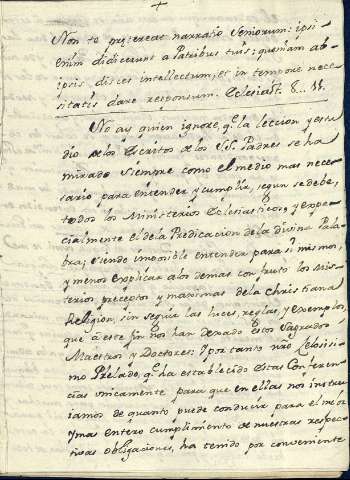 +
Non te prætereat narratio Seniorum: ipsi
enim didicerunt a Patribus tuis: quoniam ab
ipsis disces intellectum, et in tempore nece
sitatis dare responsum. Eclesiast. 8... 11.
No ay quien ignore, qe. la leccion y estu
dio de los Escritos de los SS. Padres se ha
mirado siempre como el medio mas nece
sario para entender y cumplir, segun se debe,
todos los Ministerios Eclesiasticos, y espe
cialmente el de la Predicacion de la divina Pala
bra, siendo imposible entender para si mismos,
y menos explicar a los demas con fruto los Mis
terios, preceptos y maximas de la Christiana
Religion, sin seguir las luces, reglas, y exemplos,
que à este fin nos han dexado estos Sagrados
Maestros y Doctores: Y por tanto nro. Celosisi
mo Prelado, qe. ha establecido estas Conferen
cias unicamente para que en ellas nos instru
iamos de quanto puede conducir para el mejor
y mas entero cumplimiento de nuestras respec
tivas obligaciones, ha tenido por conveniente